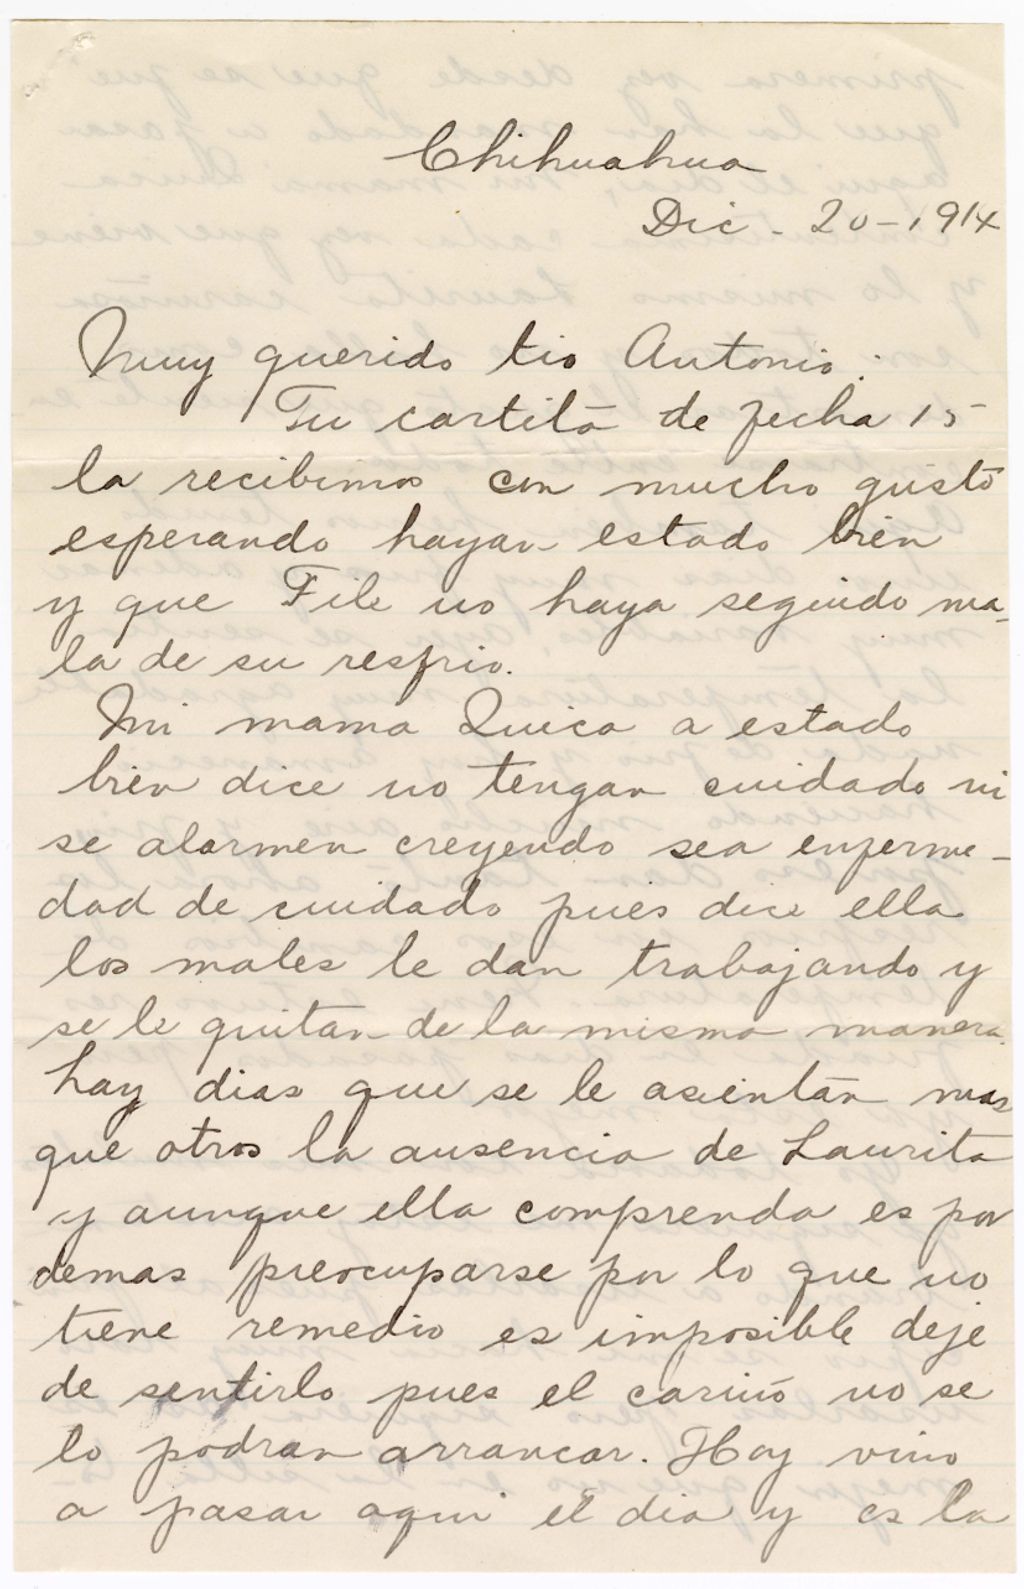 Chihuahua
Dic - 20-1914
Muy querido tio Antonio:
Tu cartita de fecha 15
la recibimos con mucho gusto
esperando hayan estado bien
y que File no haya seguido ma-
la de su resfrio.
Mi mama Quica a estado
bien dice no tengan cuidado ni
se alarmen creyendo sea enferme-
dad de cuidado pues dice ella
los males le dan trabajando y
se le quitan de la misma manera.
hay dias que se le asientan mas
que otros la ausencia de Laurita
y aunque ella comprenda es por
demas preocuparse por lo que no
tiene remedio es imposible deje
de sentirlo pues el cariño no se
lo podran arrancar. Hoy vino
a pasar aqui el dia y es la